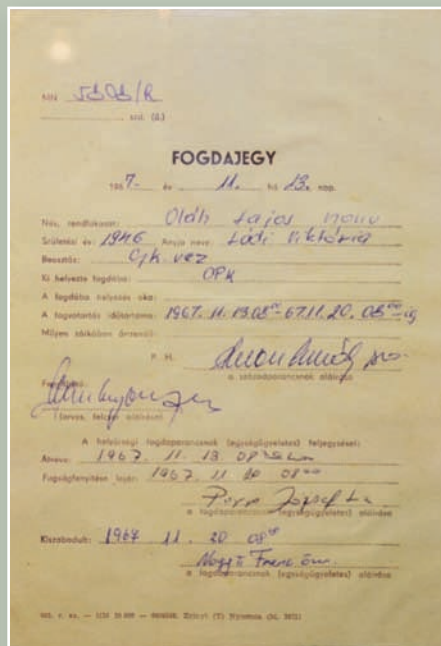 MN 5808/R
szd. (ü.)
FOGDAJEGY
1967. év 11. hó 13. nap.
Név, rendfokozat: Oláh Lajos honv
Születési év: 1946 Anyja neve: Ládi Viktória
Beosztás: Gjk. vez
Ki helyezte fogdába: OPK
A fogdába helyezés oka:
A fogvatartás időtartama: 1967. 11. 13 08⁰⁰-67. 11. 20. 08⁰⁰-ig
Milyen zárkában őrzendő:
P. H.
a századparancsnok aláírása
(orvos, felcser aláírása)
A helyőrségi fogdaparancsnok (egységügyeletes) feljegyzései:
Átvéve: 1967. 11. 13 08⁰⁰
Fogságfenyítése lejár: 1967. 11. 20 08⁰⁰
Papp József
a fogdaparancsnok (egységügyeletes) aláírása
Kiszabadult: 1967 11. 20 08⁰⁰
Nagy Ferenc
a fogdaparancsnok (egységügyeletes) aláírása